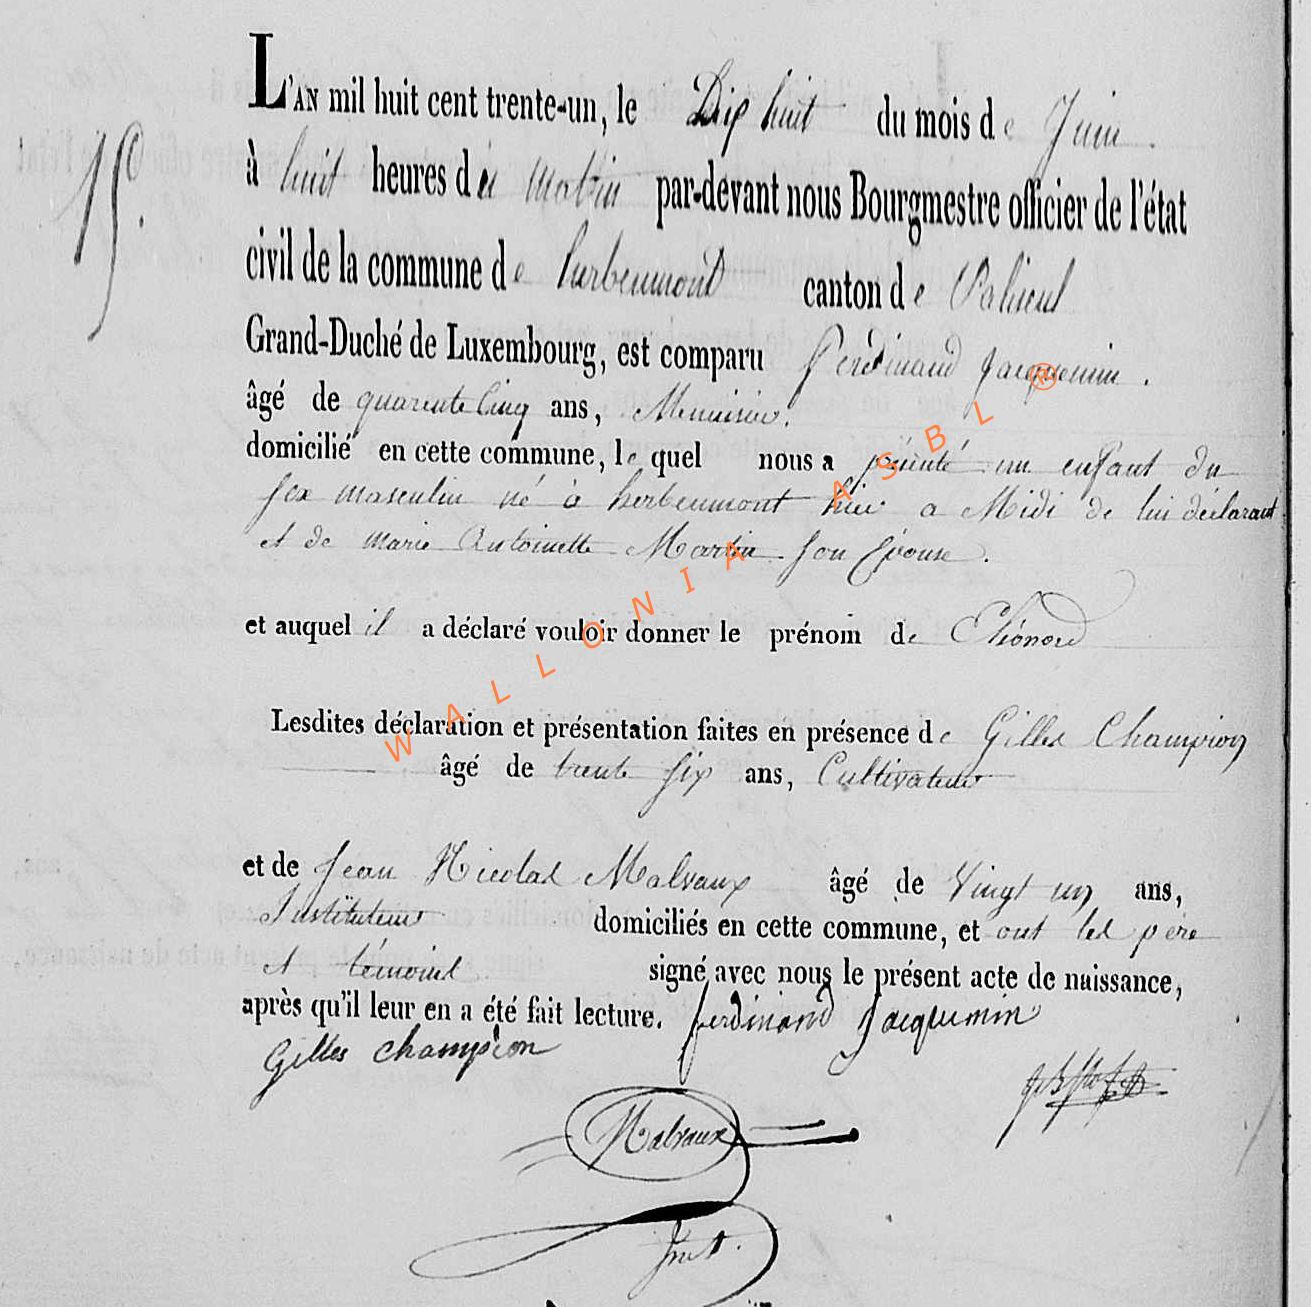 L'AN mil huit cent trente-un, le Dix huit du mois de Juin.
15°.
à huit heures du Matin par-devant nous Bourgmestre officier de l'état
civil de la commune de herbeumont canton de Paliseul
Grand-Duché de Luxembourg, est comparu Ferdinand Jacquemin.
âgé de quarente Cinq ans, Menuisier.
domicilié en cette commune, le quel nous a présenté un enfant du
sex masculin né à herbeumont hier a Midi de lui déclarant
et de marie Antoinette Martin son Epouse.
et auquel il a déclaré vouloir donner le prénom de Eléonord
Lesdites déclaration et présentation faites en présence de Gilles Champion
âgé de trente six ans, Cultivateur
et de Jean Nicolas Malvaux âgé de Vingt un ans,
Instituteur domiciliés en cette commune, et ont les père
et témoins signé avec nous le présent acte de naissance,
après qu'il leur en a été fait lecture. ferdinand Jacquemin
Gilles Champion
Malvaux
WALLONIA ASBL ®